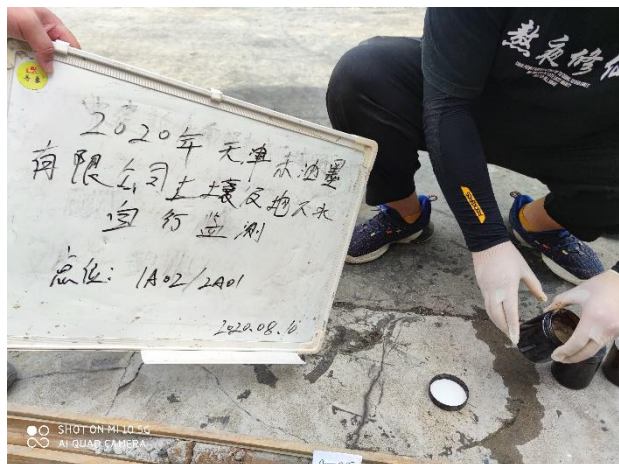 2020年天津东洋油墨
有限公司土壤及地下水
自行监测
点位: 1A02/2A01
2020.08.16
熬夜修仙
SHOT ON MI 10 5G
AI QUAD CAMERA